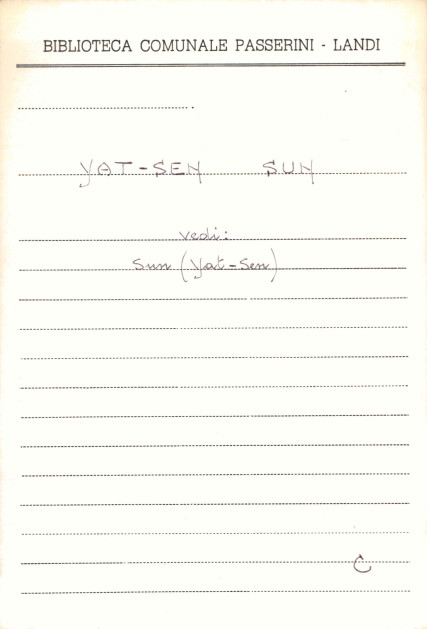 BIBLIOTECA COMUNALE PASSERINI - LANDI
YAT-SEN SUN
vedi:
Sun (Yat-Sen)
C